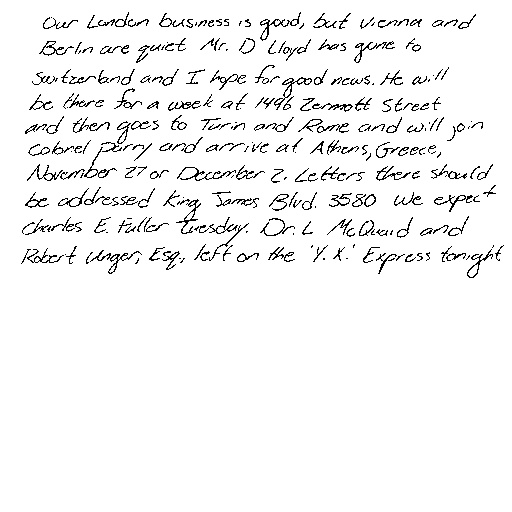 Our London business is good, but Vienna and
Berlin are quiet Mr. D Lloyd has gone to
Switzerland and I hope for good news. He will
be there for a week at 1496 Zermott Street
and then goes to Turin and Rome and will join
Colonel Parry and arrive at Athens, Greece,
November 27 or December 2. Letters there should
be addressed King James Blvd. 3580 We expect
Charles E. Fuller Tuesday. Dr. L McQuaid and
Robert Unger, Esq., left on the 'Y. X.' Express tonight.